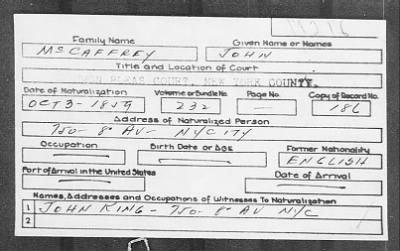 Family Name Given Name or Names
McCAFFREY JOHN
Title and Location of Court
PLEAS COURT, NEW YORK COUNTY.
Date of Naturalization Volume or Bundle No. Page No. Copy of Record No.
OCT 3- 232 — 186
Address of Naturalized Person
720- 8" AV- NYCITY
Occupation Birth Date or Age Former Nationality
ENGLISH
Port of Arrival in the United States Date of Arrival
Names, Addresses and Occupations of Witnesses To Naturalization
1 JOHN KING- 720- 8" AV NYC
2